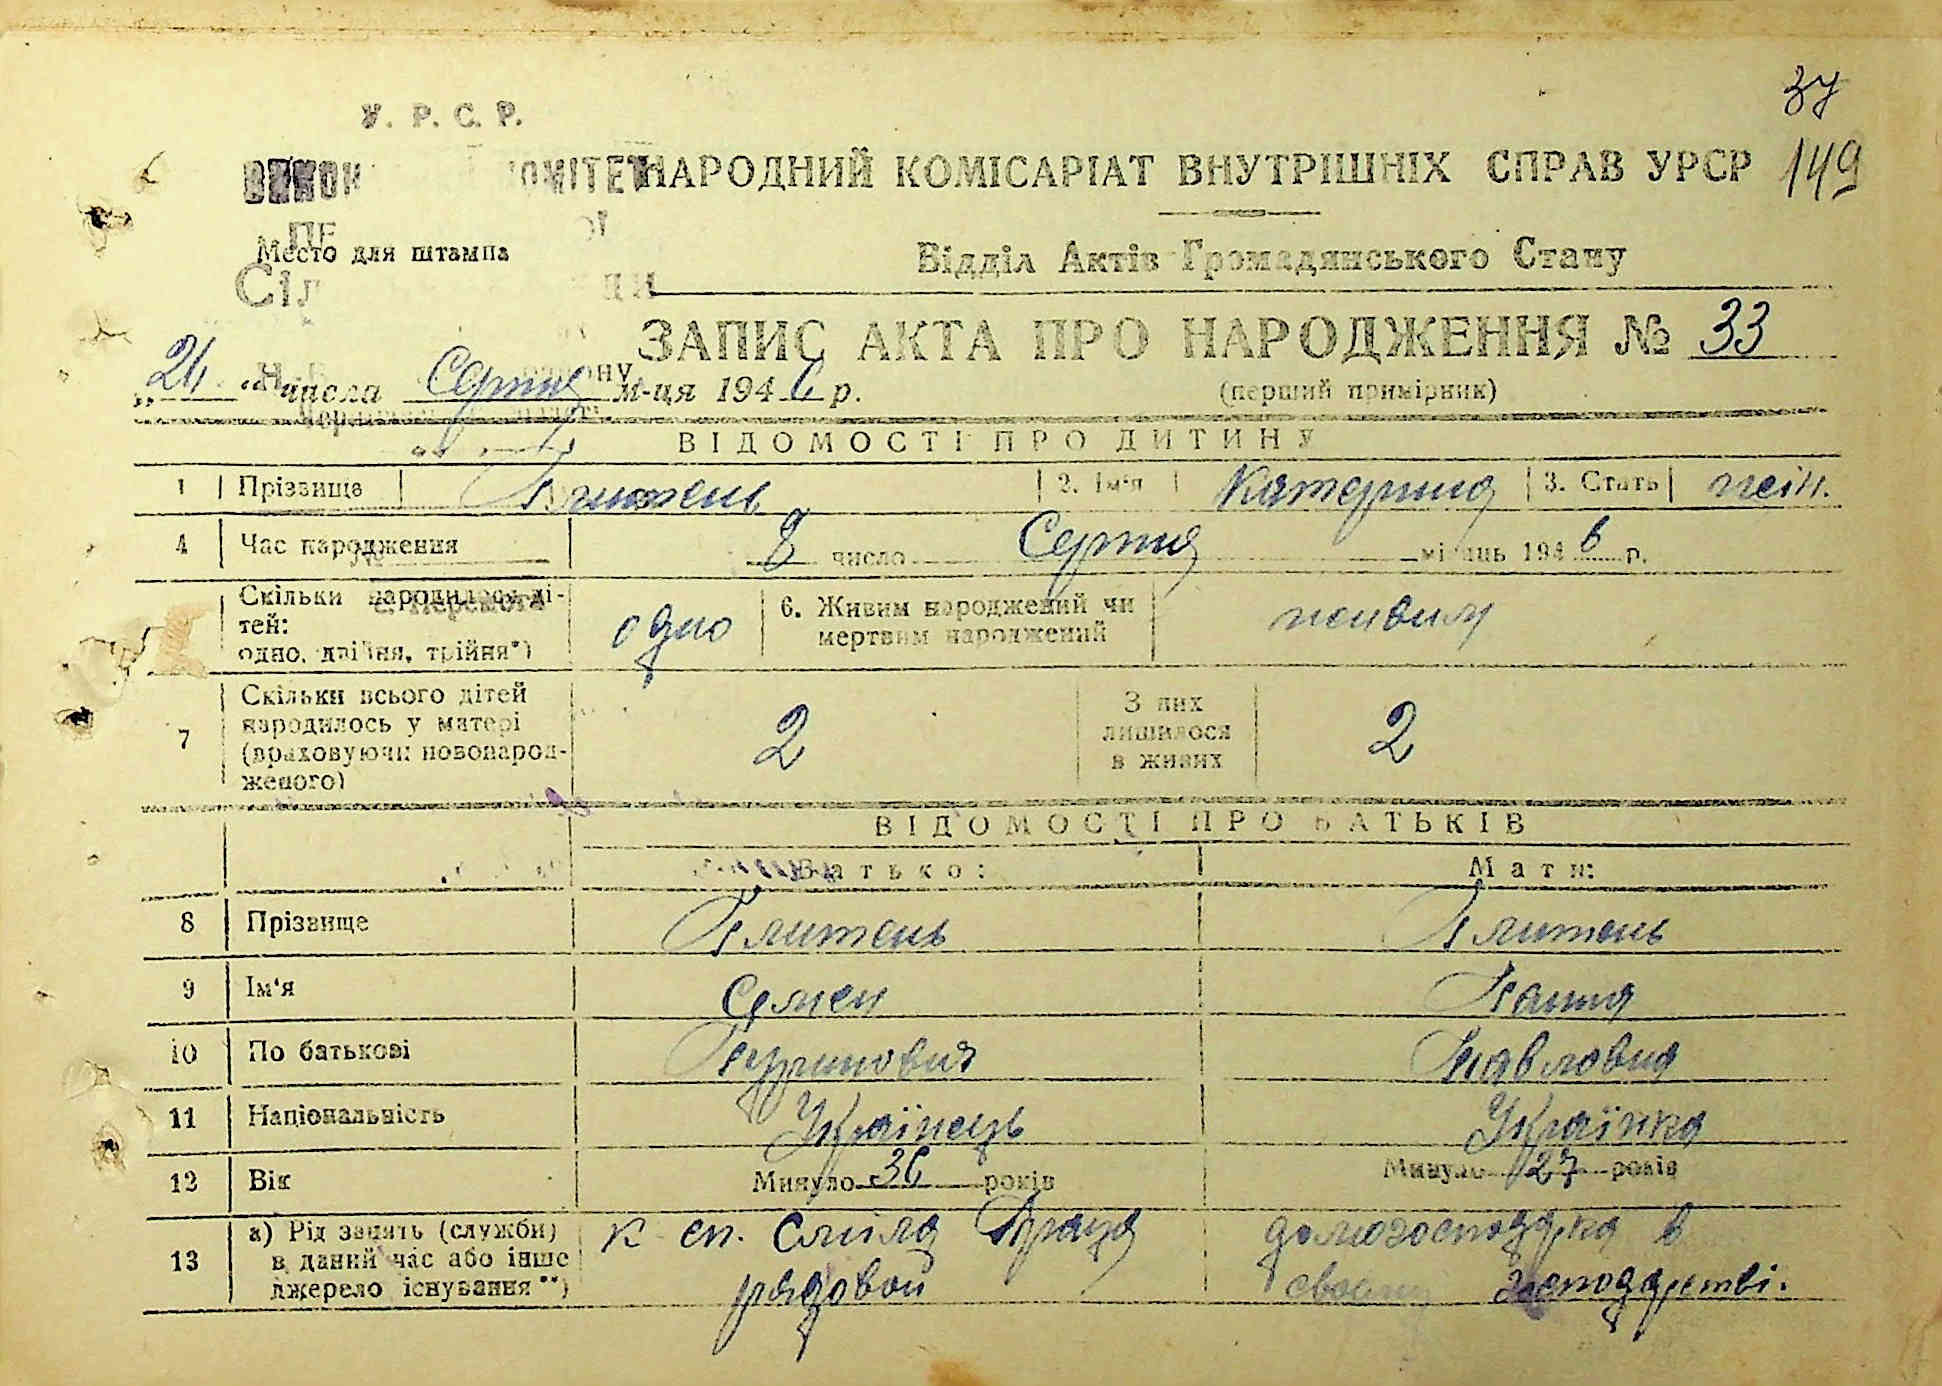 37
У. Р. С. Р.
НАРОДНИЙ КОМІСАРІАТ ВНУТРІШНІХ СПРАВ УРСР 149
Место для штампа
Відділ Актів Громадянського Стану
ЗАПИС АКТА ПРО НАРОДЖЕННЯ № 33
„ “ числа Серпня м-ця 1946 р.
(перший примірник)
ВІДОМОСТІ ПРО ДИТИНУ
1 Прізвище 2. Ім'я Катерина 3. Стать жін.
4 Час народження 8 число Серпня місяць 1946 р.
Скільки народилося ді-
тей:
одно, двійня, трійня*) одно 6. Живим народжений чи
мертвим народжений живим
7 Скільки всього дітей
народилось у матері
(враховуючи новонарод-
женого) 2 З них
лишилося
в живих 2
ВІДОМОСТІ ПРО БАТЬКІВ
Батько: Мати:
8 Прізвище
9 Ім'я Семен Ганна
10 По батькові Павловна
11 Національність Українець Українка
12 Вік Минуло 36 років Минуло 27 років
13 а) Рід занять (служби)
в даний час або інше
джерело існування**)
к сп. Спілна Праця
рядовой
домогосподарка в
своему господарстві.